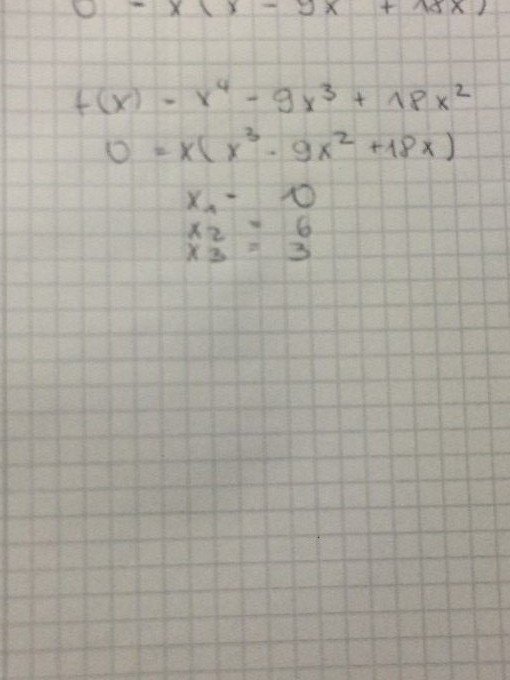 0 = x(x - 9x + 18x)
f(x) = x⁴ - 9x³ + 18x²
0 = x(x³ - 9x² + 18x)
x₁ = 0
x₂ = 6
x₃ = 3